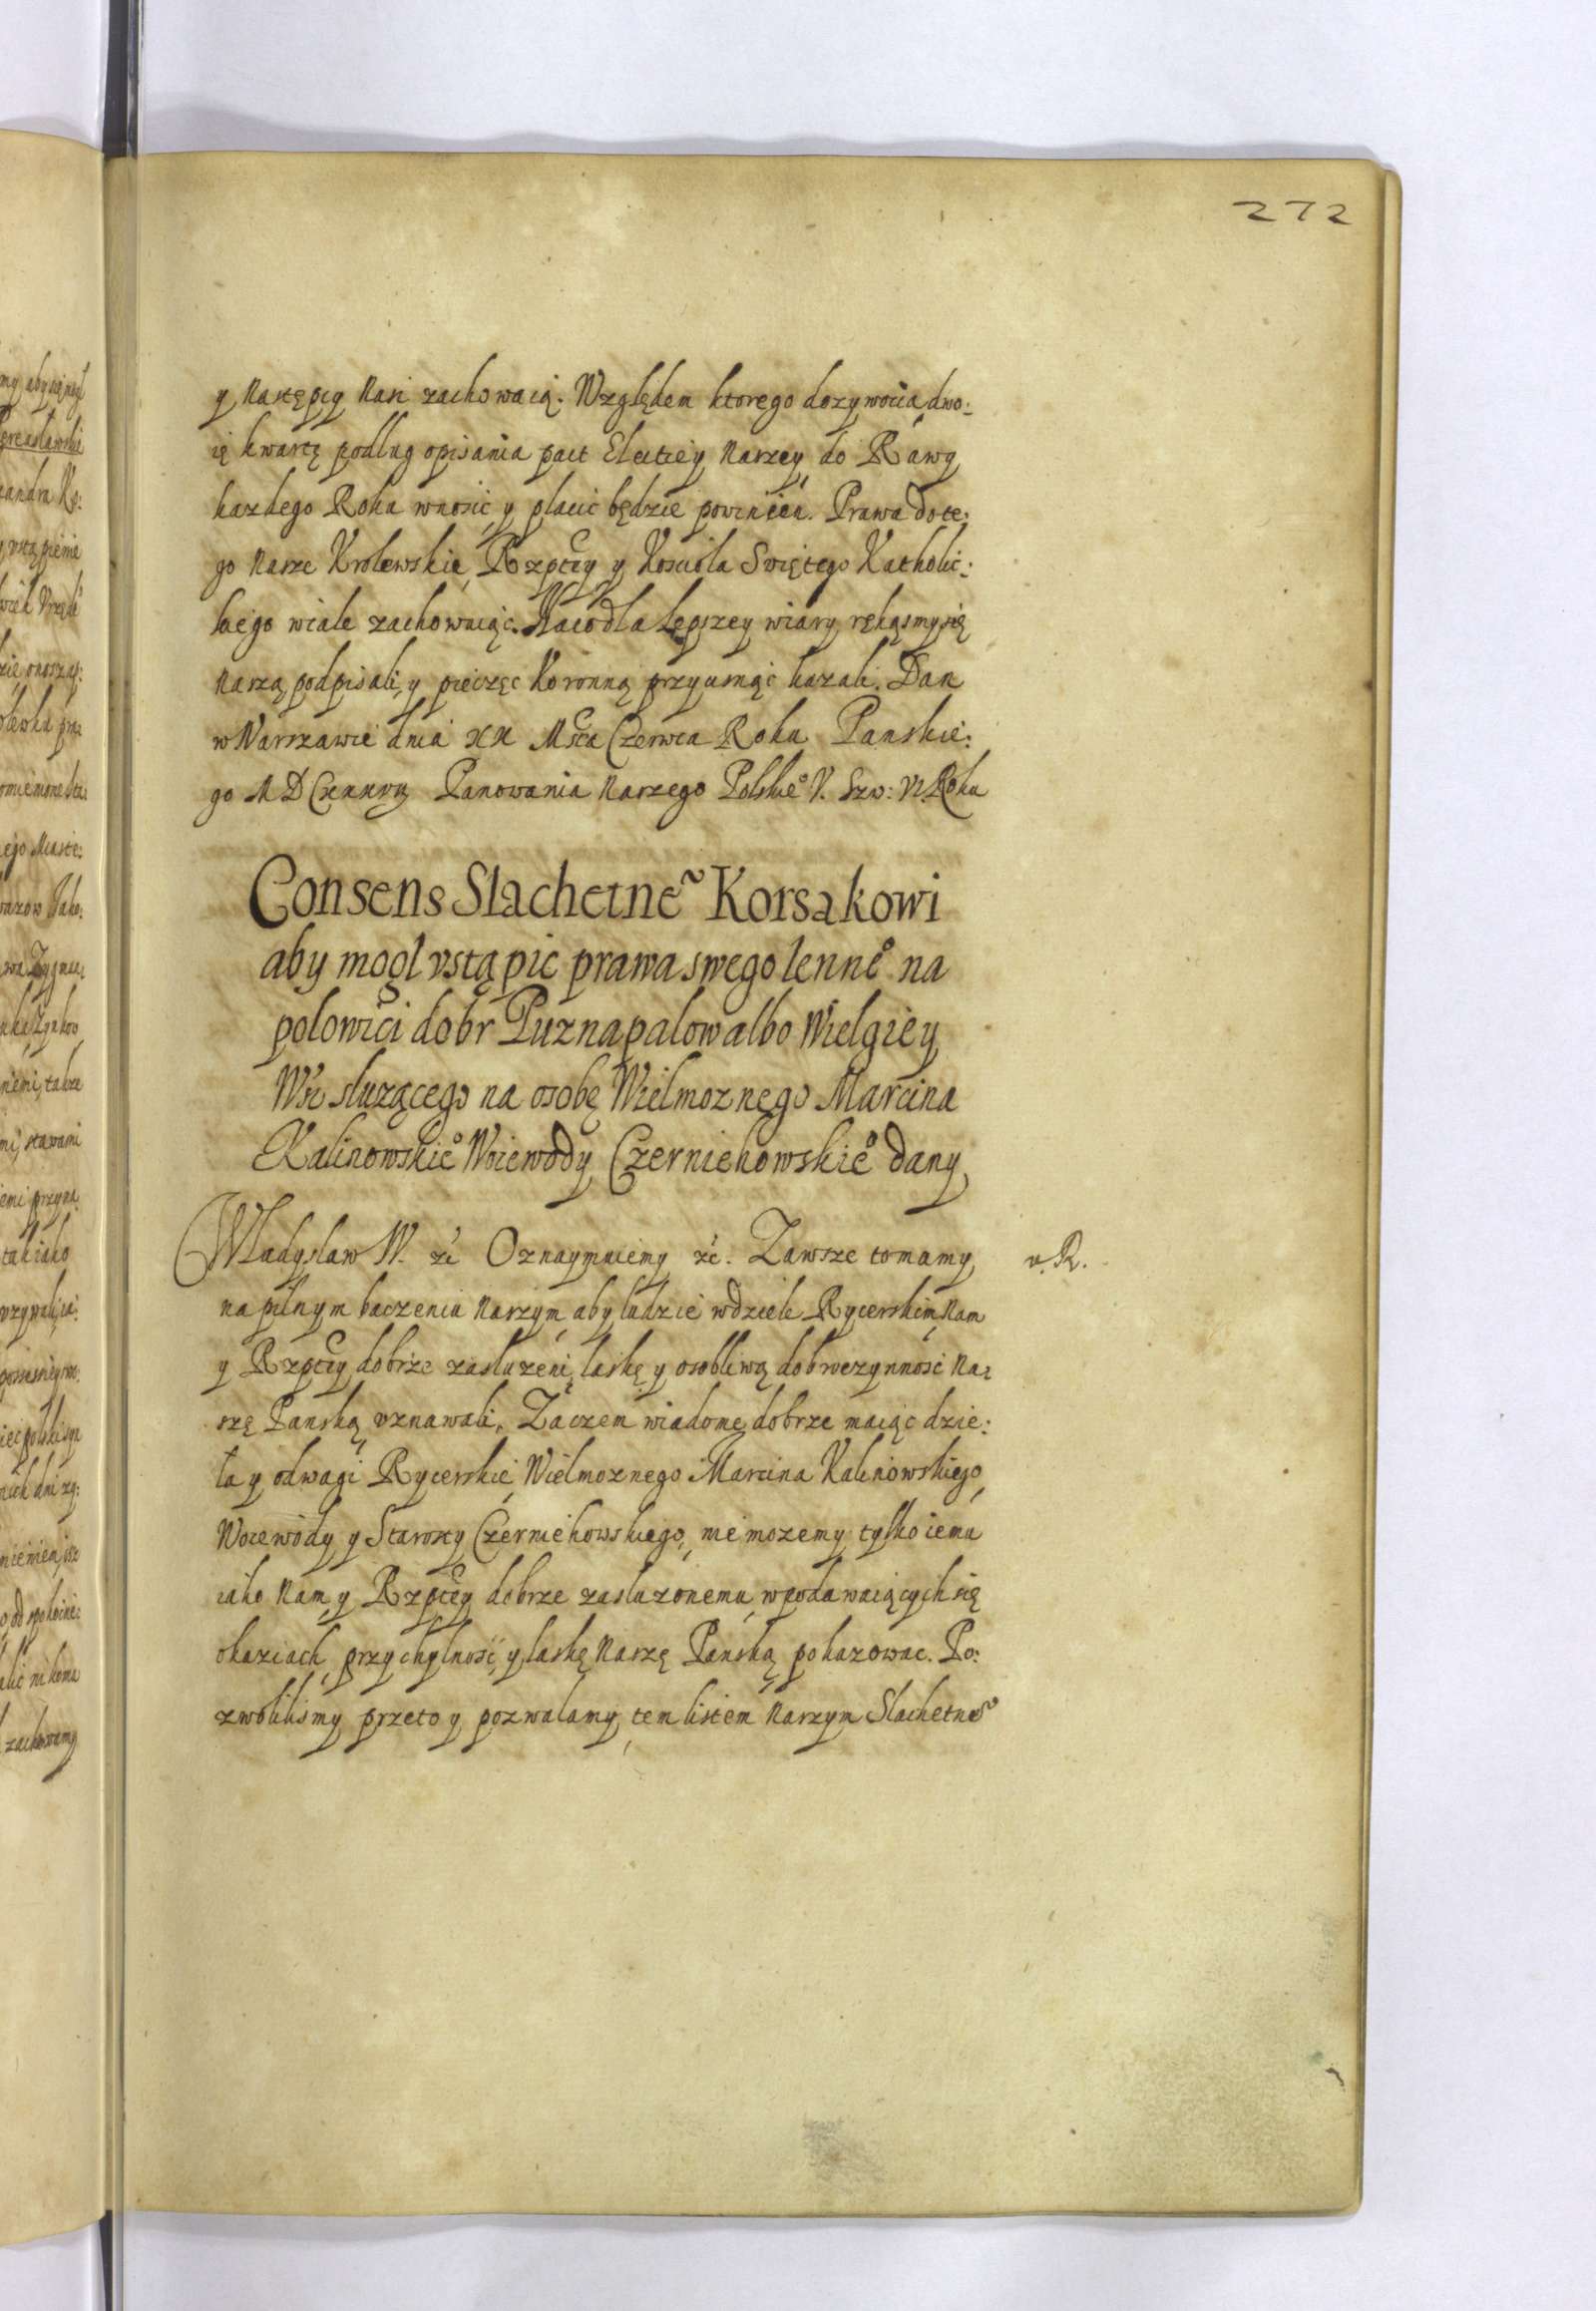 272
y Następcy Nasi zachowaią. Względem ktorego dozywocia dwo:
ię kwartę podlug opisania pact Electiey Naszey do Rawy
kazdego Roku wnosić y placic będzie powinien. Prawa do te:
go Nasze Krolewskie Rzptey y Kosciola Swiętego Katholic:
kiego wcale zachowuiąc. Na co dla Lepszey wiary ręką smy się
Naszą podpisali, y pieczęc Koronną przycisnąc kazali. Dan
w Warszawie dnia XX Msca Czerwca Roku Panskie:
go MDCXXXVII Panowania Naszego Polskieº V. Szw: VI. Roku
Consens Slachetne~ Korsakowi
aby mogl vstąpic prawa swego lenneº na
polowici dobr Puznapalow albo Wielgiey
Wsi sluzącego na osobę Wielmoznego Marcina
Kalinowskieº Woiewody Czerniehowskieº dany
Wladyslaw IV. &c Oznaymuiemy &c. Zawsze to mamy
v. R.
na pilnym baczeniu Naszym aby ludzie w dziele Rycerskim Nam
y Rzptey dobrze zasluzeni laskę y osobliwą dobroczynnosć Na:
szę Panską vznawali. Zaczem wiadome dobrze maiąc dzie:
la y odwagi Rycerskie Wielmoznego Marcina Kalinowskiego
Woiewody y Starosty Czerniehowskiego, nie mozemy tylko iemu
iako Nam y Rzptey dobrze zasluzonemu w podawaiących się
okaziach przychylnosć y laskę Naszę Panską pokazowac. Po:
zwolilismy przeto y pozwalamy tem listem Naszym Slachetneº